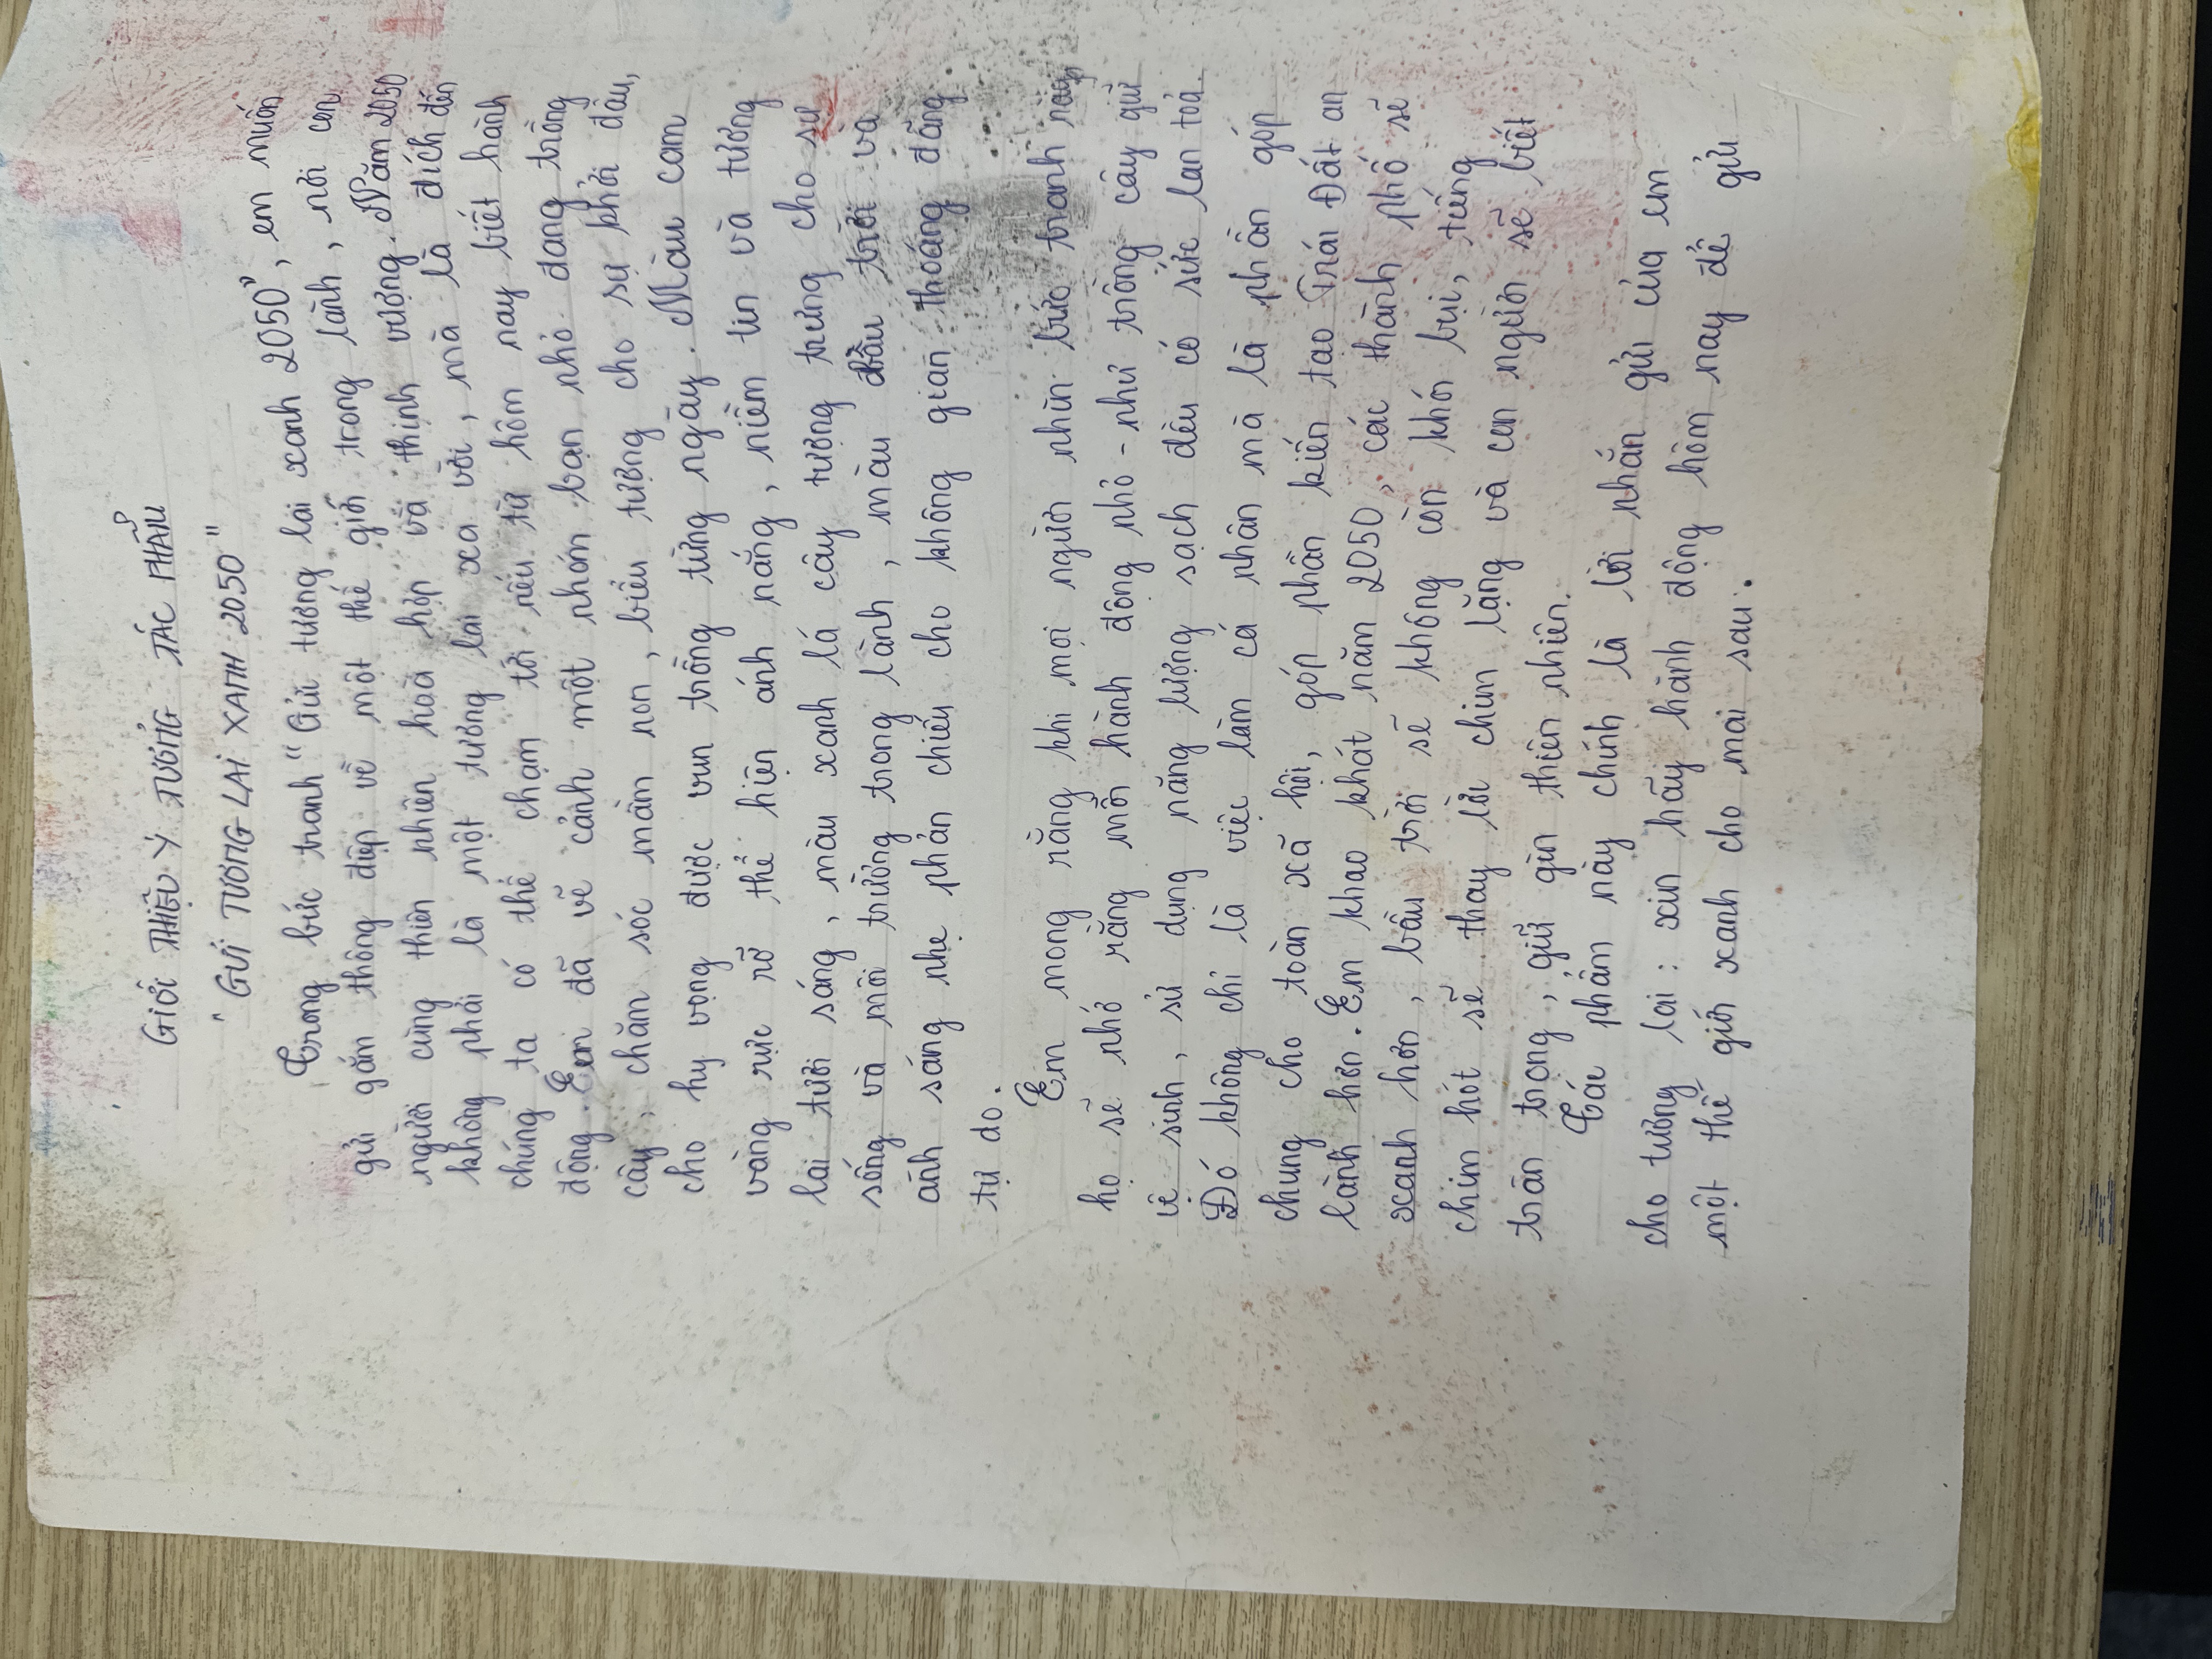 GIỚI THIỆU Ý TƯỞNG TÁC PHẨM
"GỬI TƯƠNG LAI XANH 2050"
Trong bức tranh "Gửi tương lai xanh 2050", em muốn
gửi gắm thông điệp về một thế giới trong lành, nơi con
người cùng thiên nhiên hoà hợp và thịnh vượng. Năm 2050
không phải là một tương lai xa vời, mà là đích đến
chúng ta có thể chạm tới nếu từ hôm nay biết hành
động. Em đã vẽ cảnh một nhóm bạn nhỏ đang trồng
cây, chăm sóc mầm non, biểu tượng cho sự khởi đầu,
cho hy vọng được vun trồng từng ngày. Màu cam
vàng rực rỡ thể hiện ánh nắng, niềm tin và tương
lai tươi sáng, màu xanh lá cây tượng trưng cho sự
sống và môi trường trong lành, màu xanh trời và
ánh sáng nhẹ phản chiếu cho không gian thoáng đãng
tự do.
Em mong rằng khi mọi người nhìn bức tranh này,
họ sẽ nhớ rằng mỗi hành động nhỏ - như trồng cây giữ
vệ sinh, sử dụng năng lượng sạch đều có sức lan toả.
Đó không chỉ là việc làm cá nhân mà là phần góp
chung cho toàn xã hội, góp phần kiến tạo Trái Đất an
lành hơn. Em khao khát năm 2050, các thành phố sẽ
xanh hơn, bầu trời sẽ không còn khói bụi, tiếng
chim hót sẽ thay lời chim lặng và con người sẽ biết
trân trọng, giữ gìn thiên nhiên.
Tác phẩm này chính là lời nhắn gửi của em
cho tương lai: xin hãy hành động hôm nay để gửi
một thế giới xanh cho mai sau.